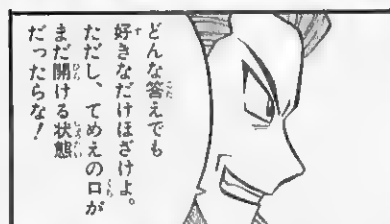 どんな答えでも
好きなだけほざけよ。
ただし、てめえの口が
まだ開ける状態
だったらな!